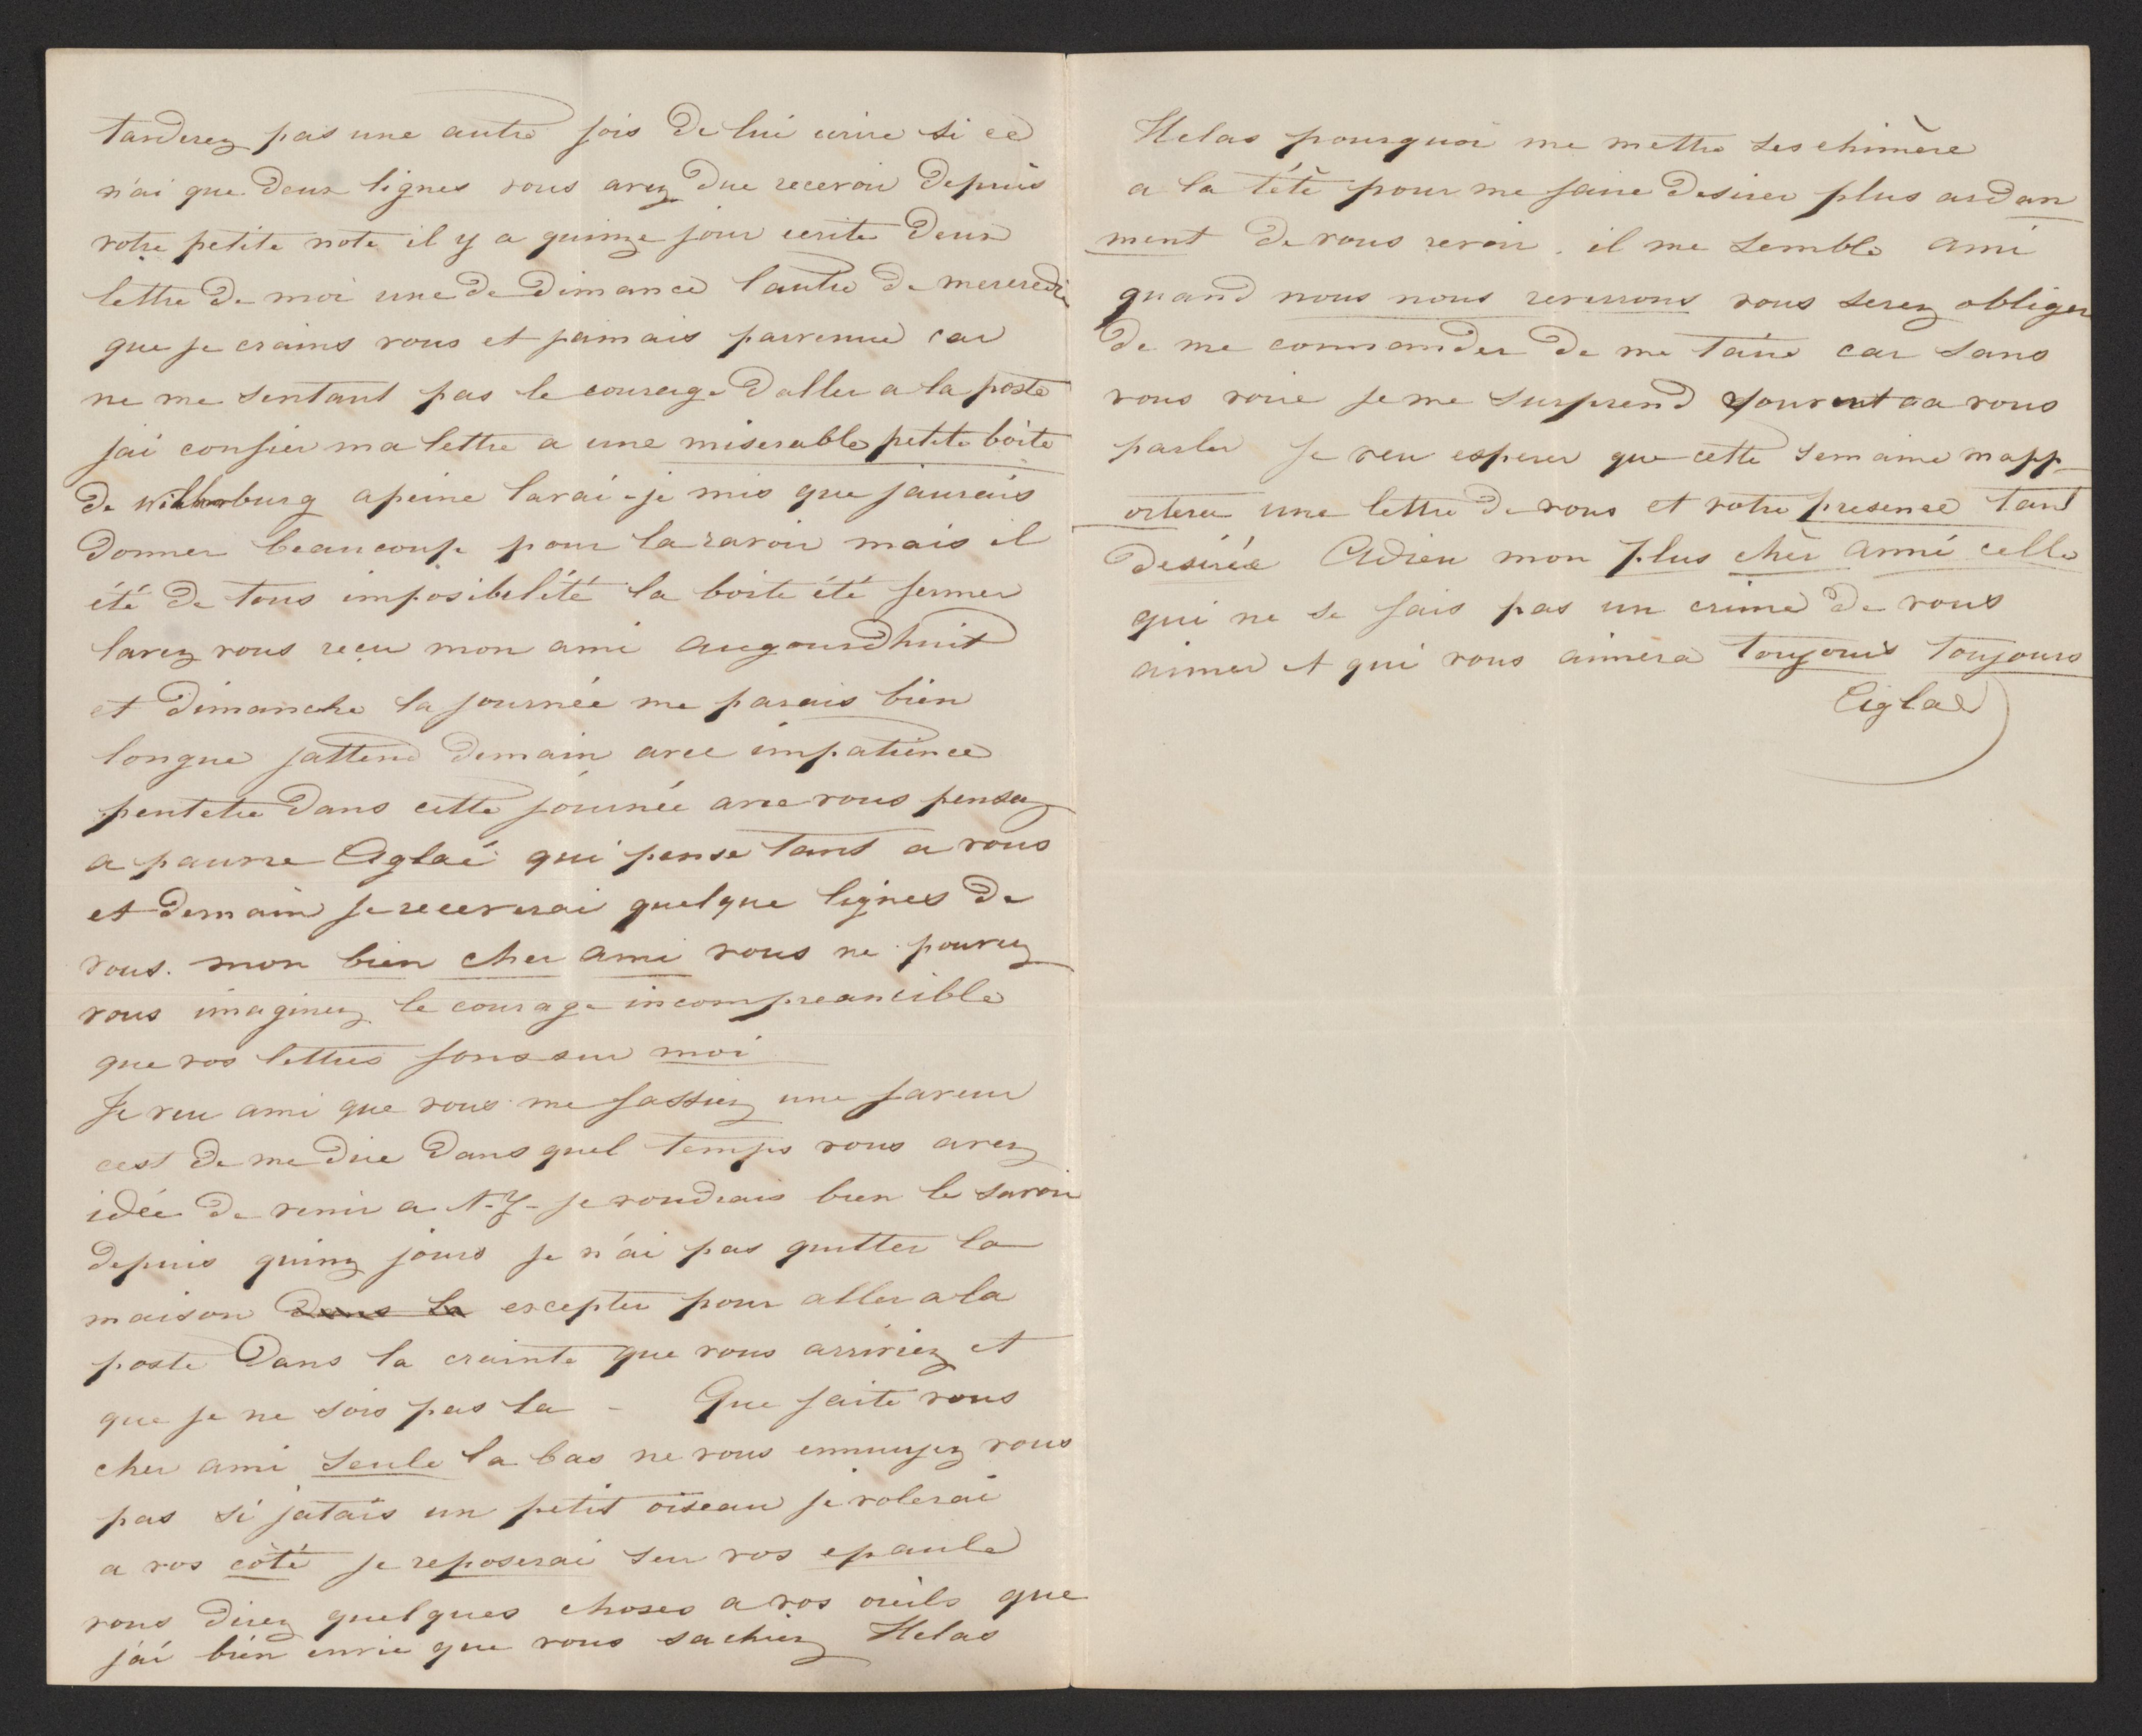 tarderez pas une autre fois de lui ecrire si ce
n'ai que deux lignes vous avez due recevoir depuis
votre petite note il y a quinze jour ecrite deux
lettre de moi une de dimance l'autre de mercredi
que je crains vous et jamais parvenue car
ne me sentant pas le courage d'aller a la poste
jai confier ma lettre a une miserable petite boite
de burg apeine lavai-je mis que jaurais
donner beaucoup pour la ravoir mais il
été de tous imposibelité la boite été fermer
lavez vous reçu mon ami augourdhuit
et dimanche la journée me parais bien
longue jattend demain avec impatience
peutetre dans cette journée avec vous pensez
a pauvre Aglaé qui pense tant a vous
et demain je receverai quelque lignes de
vous. mon bien cher ami vous ne pouvez
vous imaginez le courage incompreancible
que vos lettres fons sur moi
Je veu ami que vous me fassiez une faveur
cest de me dire dans quel temps vous avez
idée de venir a N-Y- je voudrais bien le savoir
depuis quinz jours je n'ai pas quitter la
maison dans la excepter pour aller a la
poste dans la crainte que vous arriviez et
que je ne sois pas la - Que faite vous
cher ami seule la bas ne vous ennuyez vous
pas si jatais un petit oiseau je volerai
a vos côté je reposerai sur vos epaule
vous direz quelques choses a vos oreils que
j'ai bien envie que vous sachiez Helas
Helas pourquoi me mettre ses chimère
a la tête pour me faire desirer plus ardan
ment de vous revoir. il me semble ami
quand nous nous reverrons vous serez obliger
de me commander de me taire car sans
vous voire je me surprend souvent a vous
parler Je veu esperer que cette semaine mapp-
ortera une lettre de vous et votre presence tant
desirée Adieu mon plus cher ami celle
qui ne se fais pas un crime de vous
aimer et qui vous aimera toujours toujours
Eiglaé